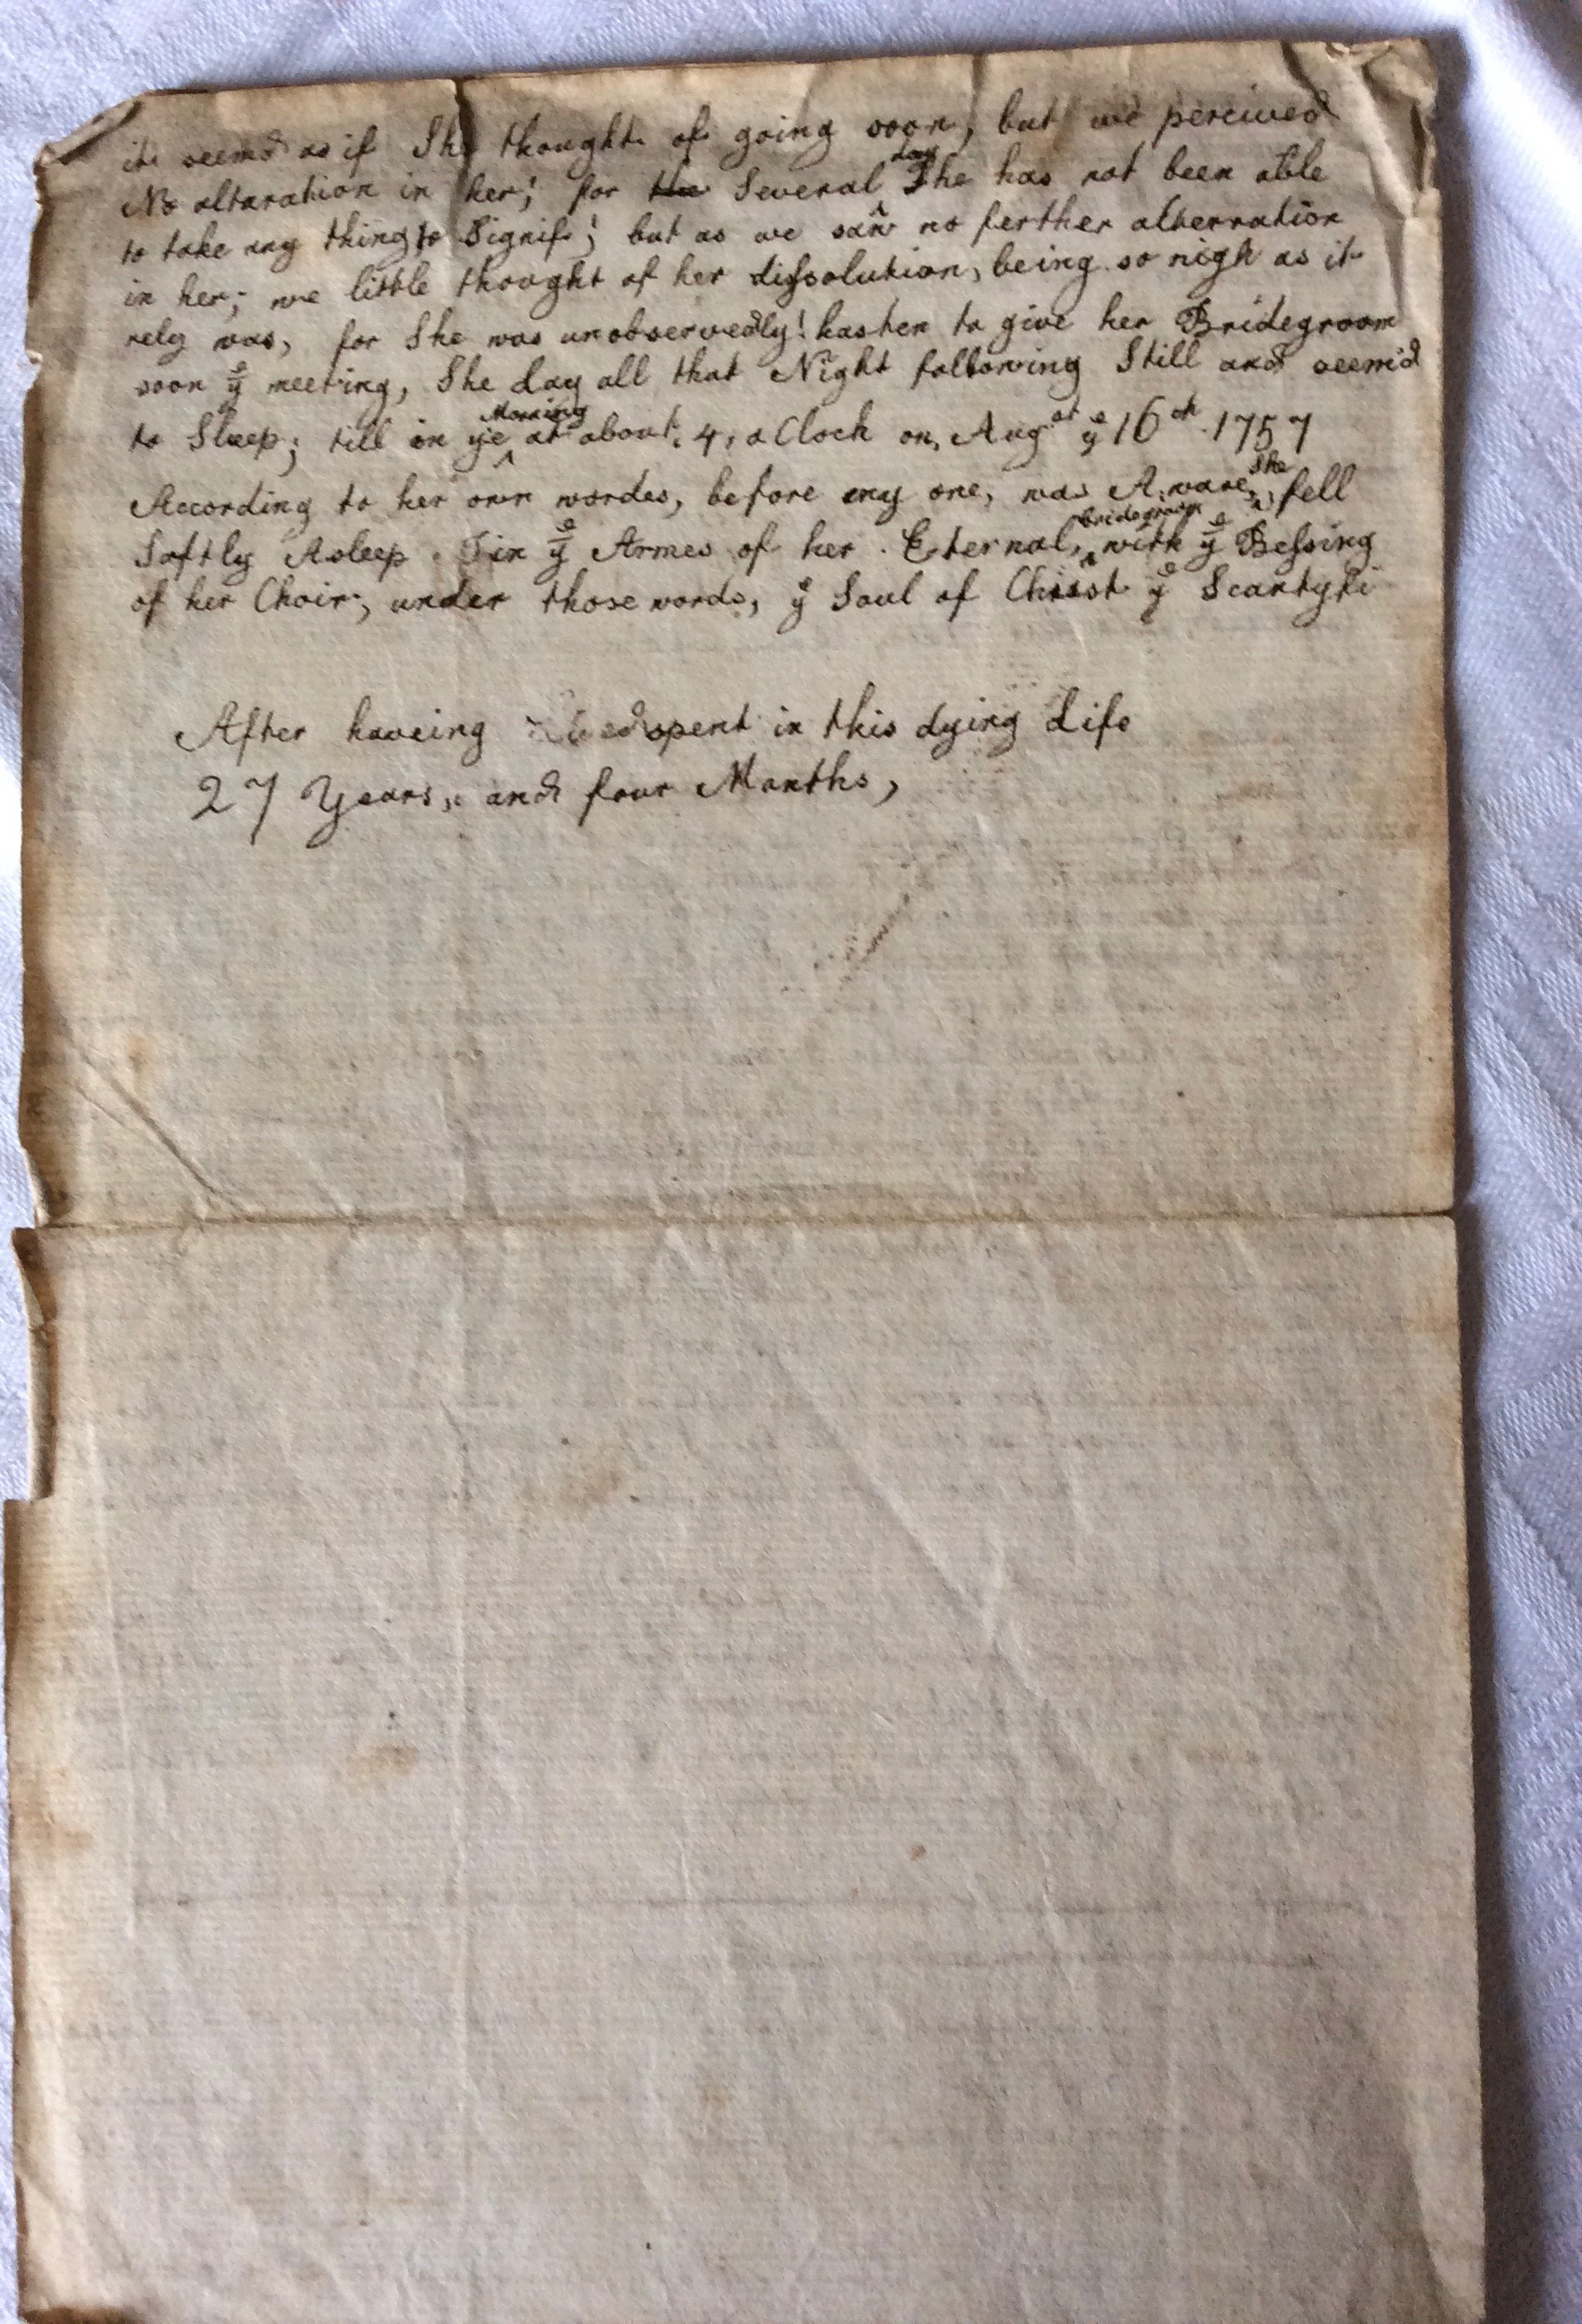 it seemd as if She thought of going soon, but we perciued
No altaration in her; for the Several day She has not been able
to take any thing to Signif; but as we saw no ferther alterration
in her; we little thought of her dissolution, being so nigh as it
rely was, for She was unobservedly! hasten to give her Bridegroom
soon ye meeting, She lay all that Night following Still and seem'd
to Sleep; till in ye Morning at about, 4, a Clock on, Augst ye 16th 1757
According to her own wordes, before eny one, was Aware, She fell
Softly Asleep in ye Armes of her Eternal, bridegroom with ye Bessing
of her Choir, under those words, ye Soul of Christ ye Scantyfi
After haveing spent in this dying Life
27 Years, and four Months,